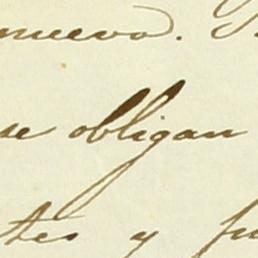 nuevo.
se obligan
tes y